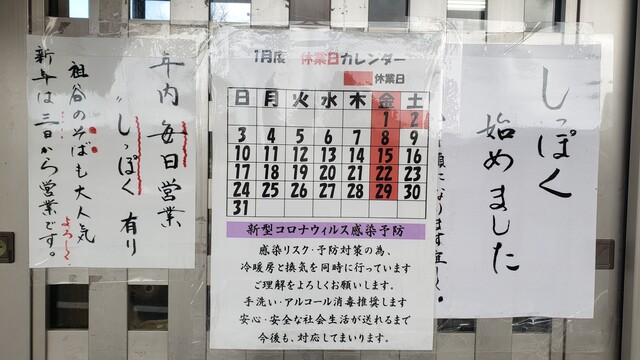 年内毎日営業
"しっぽく有り
祖谷のそばも大人気
よろしく
新年は三日から営業です。
1月度 休業日カレンダー
休業日
日 月 火 水 木 金 土
1 2
3 4 5 6 7 8 9
10 11 12 13 14 15 16
17 18 19 20 21 22 23
24 25 26 27 28 29 30
31
新型コロナウィルス感染予防
感染リスク・予防対策の為、
冷暖房と換気を同時に行っています
ご理解をよろしくお願いします。
手洗い・アルコール消毒推奨します
安心・安全な社会生活が送れるまで
今後も、対応してまいります。
しっぽく
始めました